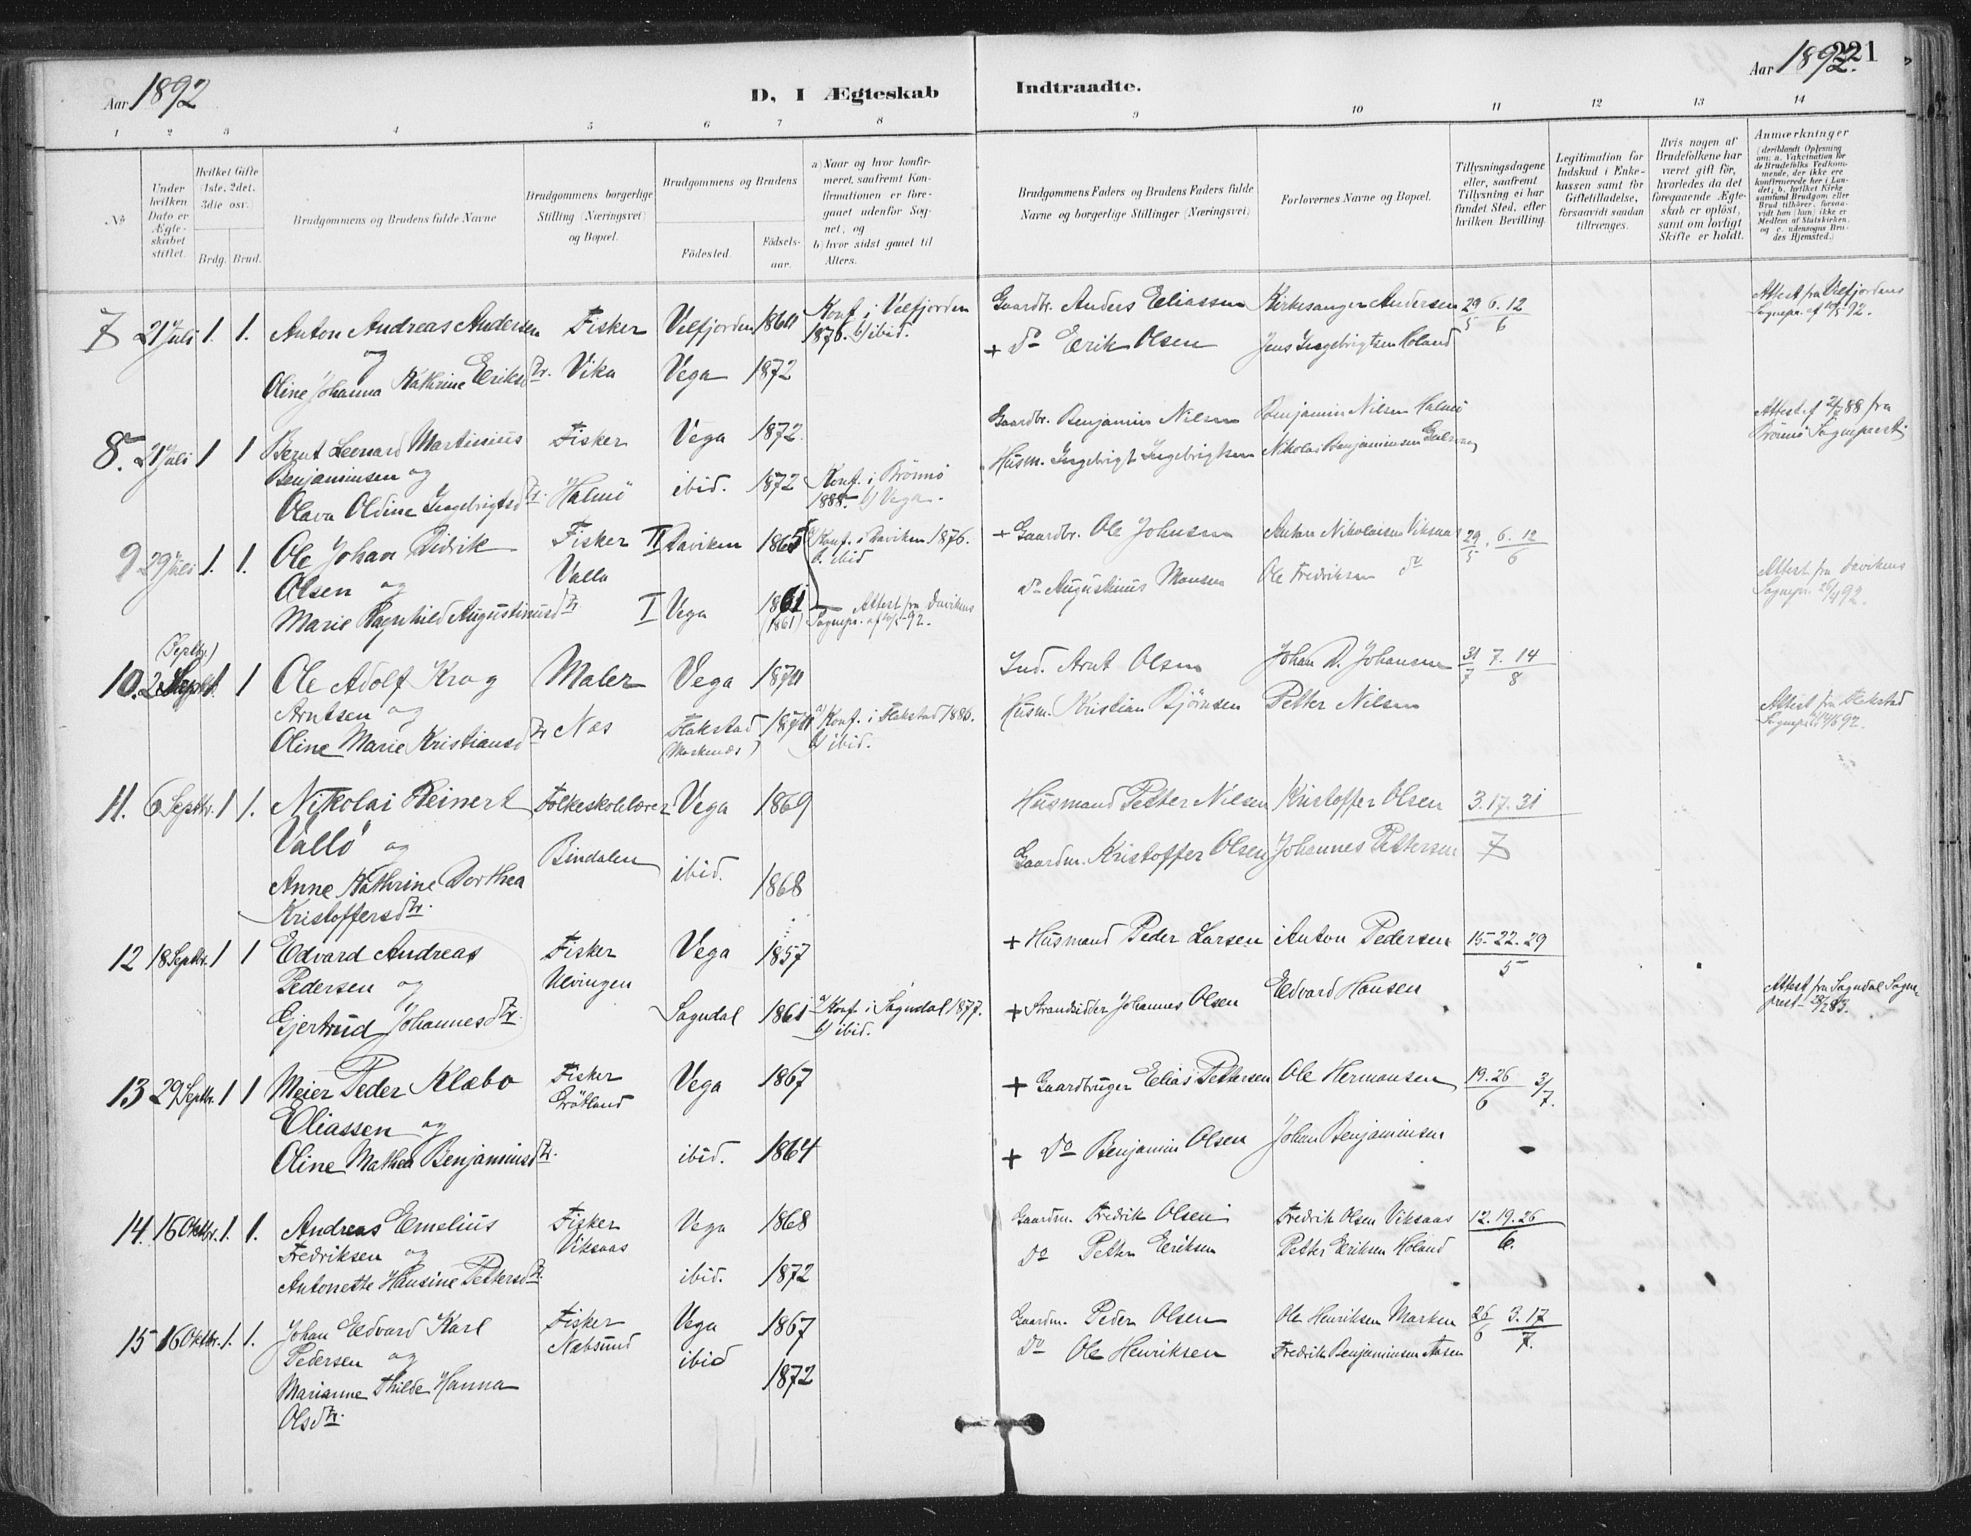 Aar 1892
D, I Ægteskab
Indtraadte.
Aar 1892.
221
1 2 3 4 5 6 7 8 9 10 11 12 13 14
No
Under hvilken Dato er Ægteskabet stiftet.
Hvilket Gifte (1ste, 2det, 3die osv.)
Brdg. Brud.
Brudgommens og Brudens fulde Navne
Brudgommens borgerlige Stilling (Næringsvei) og Bopæl.
Brudgommens og Brudens
Fødested.
Fødselsaar.
a) Naar og hvor konfirmeret, saafremt Konfirmationen er foregaaet udenfor Sognet, og
b) hvor sidst gaaet til Alters.
Brudgommens Faders og Brudens Faders fulde Navne og borgerlige Stillinger (Næringsvei)
Forlovernes Navne og Bopæl.
Tillysningsdagene eller, saafremt Tillysning ei har fundet Sted, efter hvilken Bevilling.
Legitimation for Indskud i Enkekassen samt for Giftetilladelse, forsaavidt saadan tiltrænges.
Hvis nogen af Brudefolkene har været gift før, hvorledes da det foregaaende Ægteskab er opløst, samt om lovligt Skifte er holdt.
Anmærkninger
7 21 Juli 1. 1. Anton Andreas Andersen Fisker Velfjorden Konf. i Velfjorden Gaardbr. Anders Eliassen Kirkesanger Andersen 29/5 6. 12/6 Attest fra Velfjordens
og 1876. b) ibid. + Do Erik Olsen Jens Ingebrigtsen Holand Sognepr.
Oline Johanna Kathrine Eriksdtr. Vika Vega 1872
8. 21 Juli 1 1 Bernt Leonard Martinius Fisker Vega 1872. Gaardbr. Benjamin Nilsen Benjamin Nilsen Halmø Attest fra
Benjaminsen og Konf. i Brønnø Husm. Ingebrigt Ingebrigtsen Nikolai Benjaminsen Brønnø Sogneprest
Olava Oldine Ingebrigtsdtr. Halmø ibid. 1872 1888. b) Vega.
9 29 Juli 1. 1. Ole Johan Didrik Fisker II Daviken 1865 Konf. i Daviken 1876. + Gaardbr. Ole Johnsen Anton Nikolaisen Viksaas 29/5. 6. 12/6
Olsen og Valla b. ibid do Augustinus Monsen Ole Fredriksen do Attest fra Davikens
Marie Ragnhild Augustinusdtr I Vega 1861 (1861) Attest fra Davikens Sognepr.
10. 2 Septbr. (Septbr) 1 1 Ole Adolf Krog Maler Vega Ind. Arnt Olsen Johan D. Johansen 31/7 7. 14/8
Arntsen og Husm. Kristian Bjørnsen Petter Nilsen Attest fra Flakstad
Oline Marie Kristiansdtr Nes Flakstad a) Konf. i Flakstad 1886. b) ibid.
11. 6 Septbr. 1 1. Nikolai Reinert Folkeskolelærer Vega 1869 Husmand Petter Nilsen Kristoffer Olsen 3. 17. 31
Vallø og Bindalen Gaardm. Kristoffer Olsen Johannes Pettersen 7
Anne Kathrine Dorthea ibid. 1868
Kristoffersdtr.
12 18 Septbr. 1 1 Edvard Andreas Fisker Vega 1857 + Husmand Peder Larsen Anton Pedersen 15. 22. 29
Pedersen og Ulvingen Edvard Hansen 5
Gjertrud Johannesdtr. Sogndal 1861 a) Konf. i Sogndal 1877. b) ibid. + Strandsidder Johannes Olsen Attest fra Sogndal Sogneprest
13 29 Septbr. 1 1 Meier Peder Klæbo Fisker Vega 1867 + Gaardbruger Elias Pettersen Ole Hermansen 19. 26/6 3/7.
Eliassen og Grøtland
Oline Mathea Benjaminsdtr. ibid. 1864 + Do Benjamin Olsen Johan Benjaminsen
14. 16 Oktbr. 1. 1. Andreas Emelius Fisker Vega 1868 Gaardm. Fredrik Olsen Fredrik Olsen Viksaas 12. 19. 26
Fredriksen og Viksaas Do Petter Eriksen Petter Eriksen Holand 6.
Antonette Hansine Pettersdtr. ibid. 1872
15 16 Oktbr. 1. 1. Johan Edvard Karl Fisker Vega 1867 Gaardm. Peder Olsen Ole Henriksen Marken 26/6 3. 17/7.
Pedersen og ibid Do Ole Henriksen Fredrik Benjaminsen
Marianne Thilde Hanna 1872
Olsdtr.